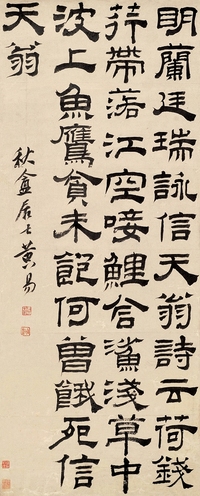 明蘭廷瑞詠信天翁詩云荷錢
荇帶落江空唼鯉含鯊淺草中
波上魚鷹貪未飽何曾餓死信
天翁
秋盦居士黃易